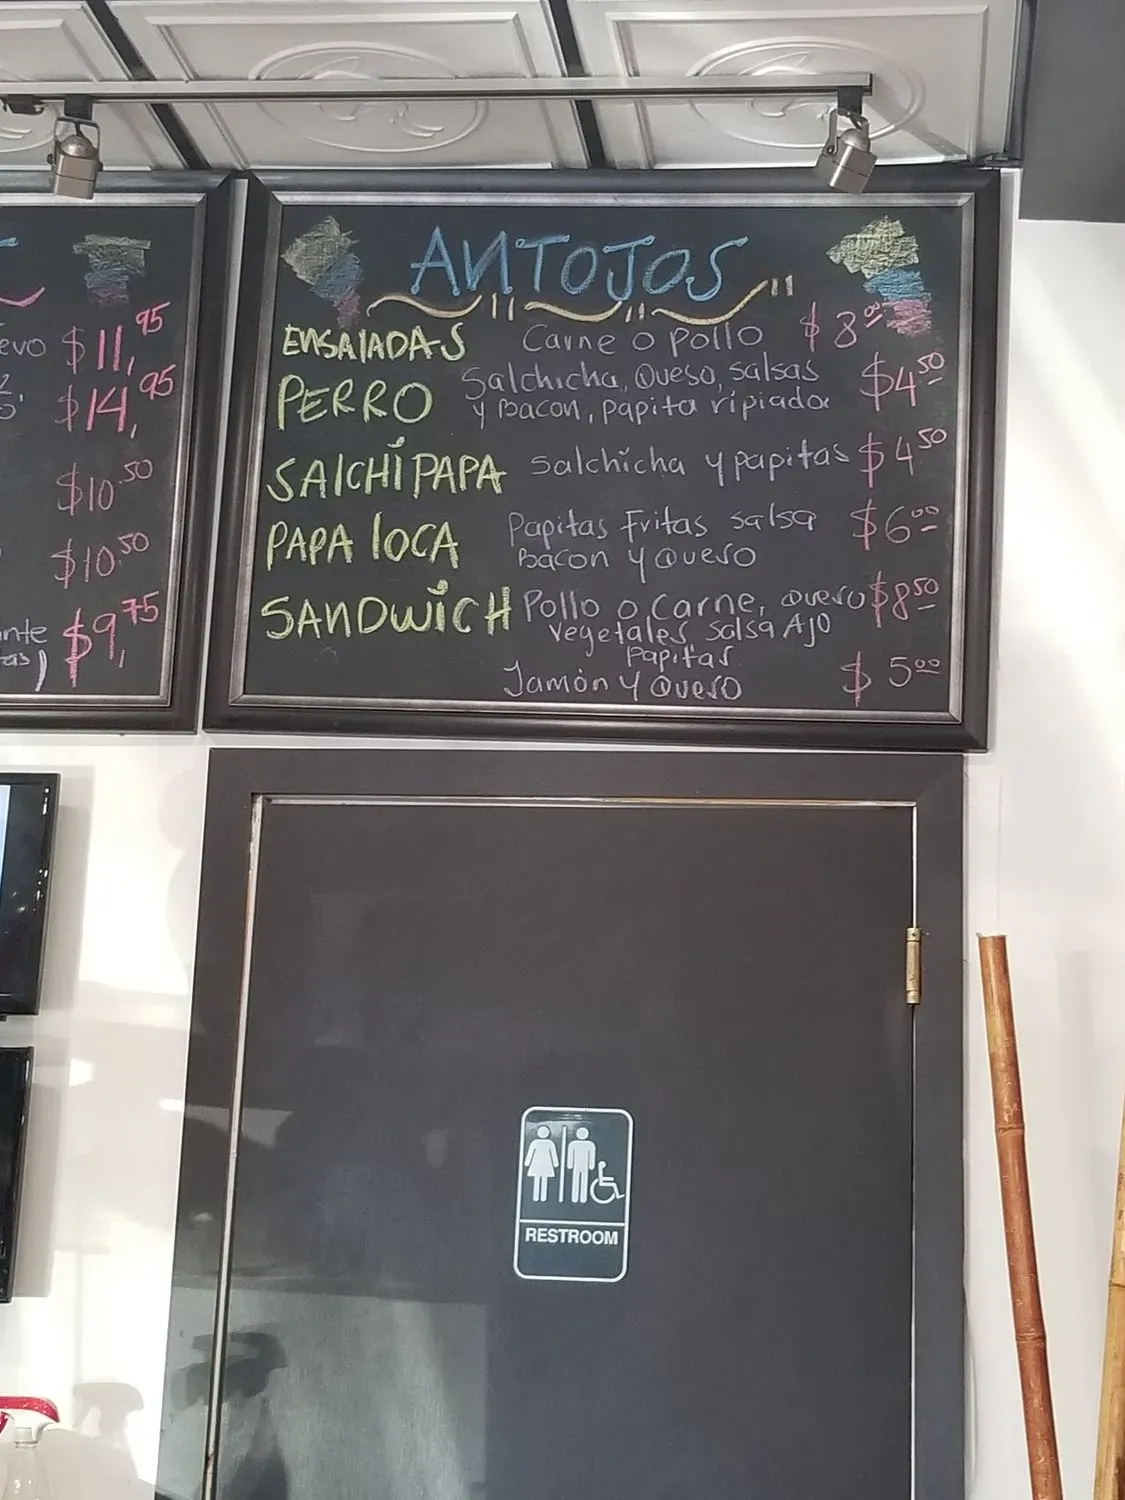 evo $11,95
$14,95
$10 50
$10 50
ante $9,75
tas)
ANTOJOS
ENSAlADAS Carne o pollo $8 00
PERRO Salchicha, Queso, salsas $4 50
y Bacon, papita ripiada
SAlCHiPAPA Salchicha y papitas $4 50
PAPA lOCA Papitas Fritas salsa $6 00
Bacon y Queso
SANDWiCH Pollo o Carne, Queso $8 50
vegetales, salsa AJo
Papitas
Jamón y Queso $5 00
RESTROOM